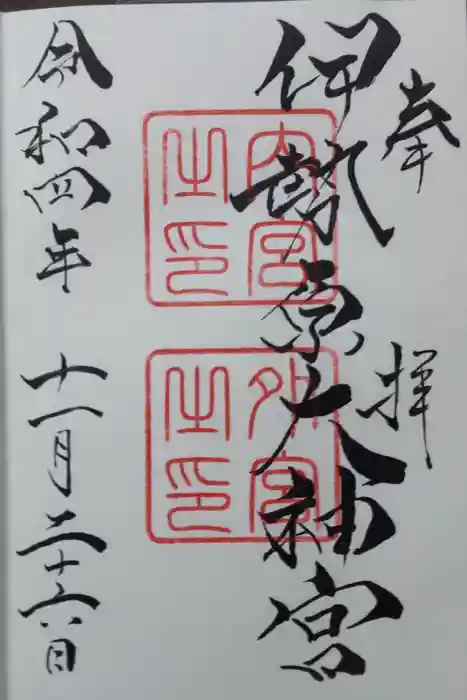 奉拝
伊勢原大神宮
内宮之印
外宮之印
令和四年十一月二十六日